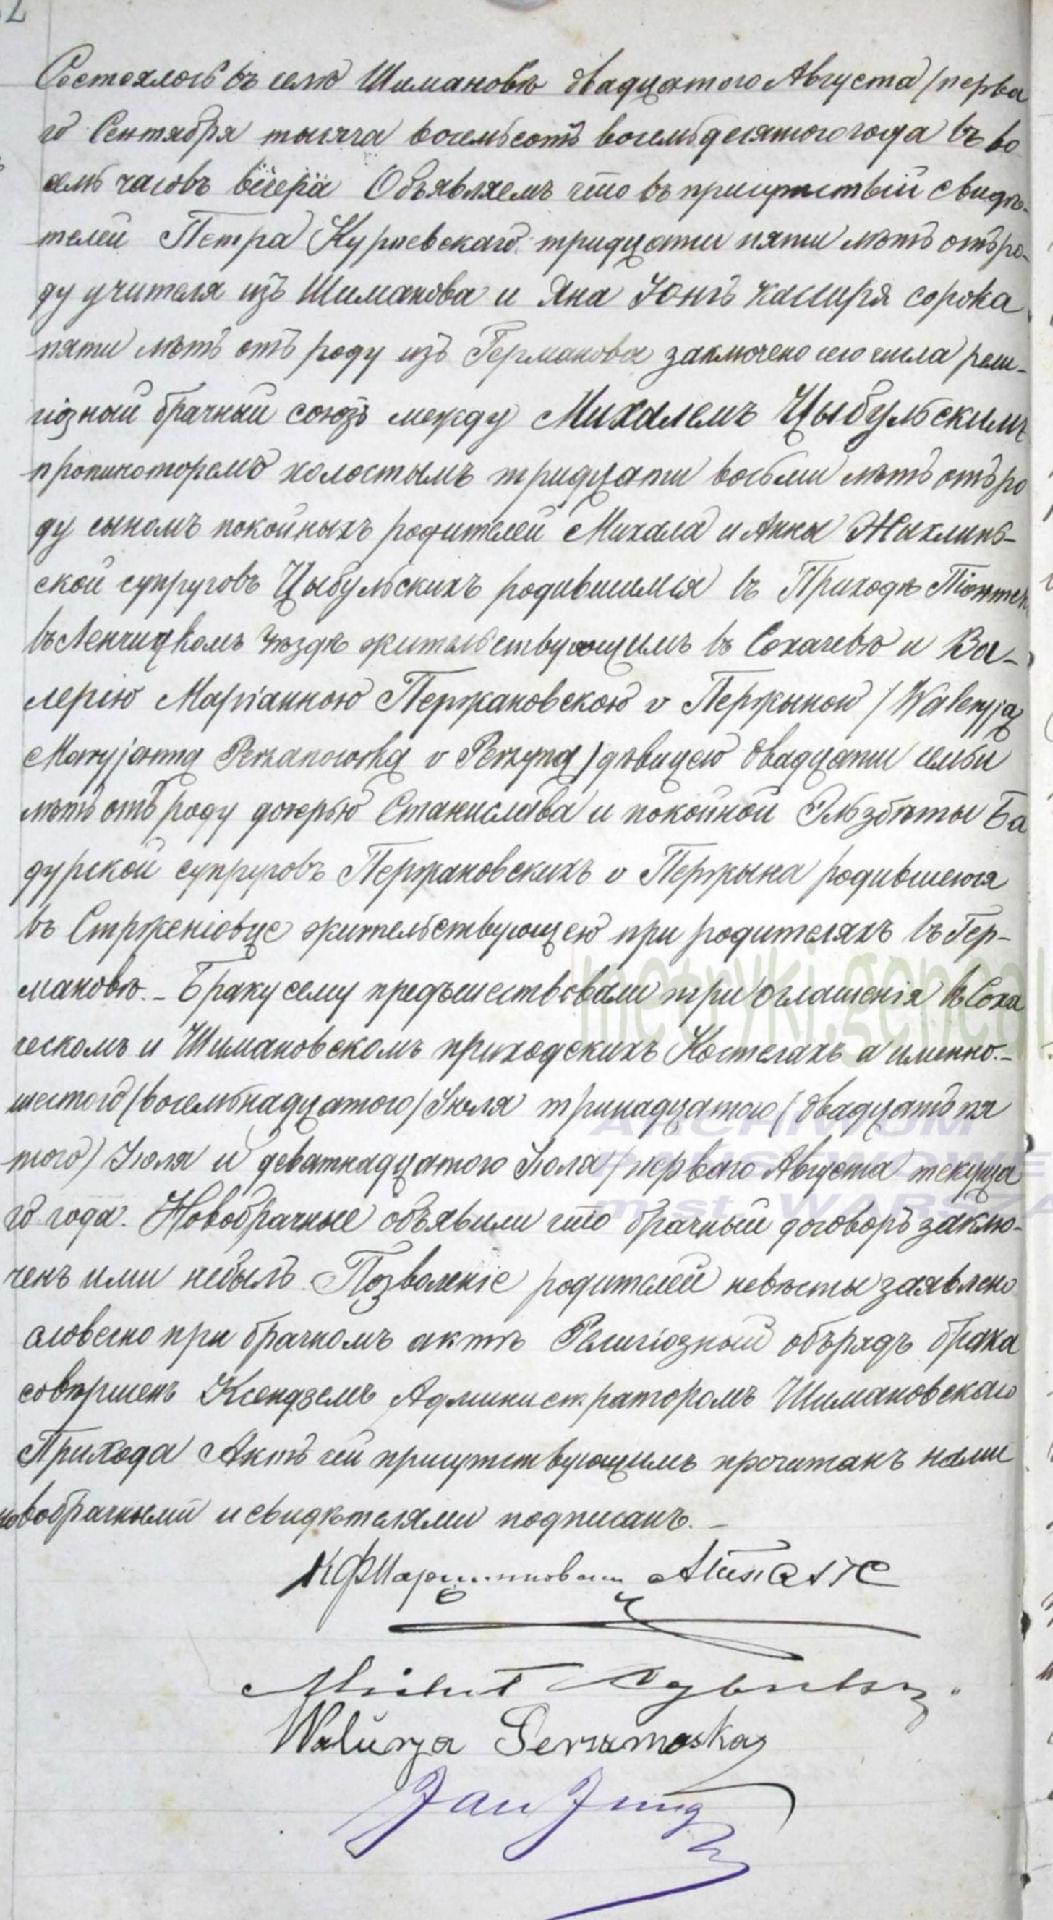 Состоялось въ селѣ Шимановѣ двадцатого Августа / перва
го Сентября тысяча восемьсотъ восемьдесятого года въ во
семь часовъ вечера Объявляемъ что въ присутствіи свидѣ-
телей Петра Куріевскаго тридцати пяти лѣтъ отъ ро-
ду учителя изъ Шиманова и Яна Юнгъ кассиря сорока
пяти лѣтъ отъ роду изъ Германова заключено сего числа рели-
гіозный брачный союзъ между Михалемъ Цыбульскимъ
пропинаторемъ холостымъ тридцати восьми лѣтъ отъ ро
ду сыномъ покойныхъ родителей Михала и Анны
ской супруговъ Цыбульскихъ родившимся въ Приходѣ
въ Ленчицкомъ Уѣздѣ жительствующимъ въ Сохачевѣ и Ва-
лерію Маріанною Пержановскою v Пержыной / Waleryją
Maryjanną Perzanowską v Perzyną / дѣвицею двадцати семи
лѣтъ отъ роду дочерью Станислава и покойной Эльзбѣты Ба
дурской супруговъ Пержановскихъ v Пержына родившеюся
въ жительствующею при родителяхъ въ Гер-
мановѣ. - Браку сему предшествовали три оглашенія въ Соха
ческомъ и Шимановскомъ приходскихъ Костелахъ а именно.-
шестого / восемьнадцатого / Іюля тринадцатого / двадцать пя
того / Іюля и деватнадцатого Іюля / перваго Августа текуща
го года. Новобрачные объявили что брачный договоръ заклю-
ченъ ими небылъ. Позволеніе родителей невѣсты заявлено
словесно при брачномъ актѣ Религіозный обърядъ брака
совершенъ Ксендземъ Администраторомъ Шимановскаго
Прихода Актъ сей присутствующимъ прочитанъ нами
новобрачными и свидѣтелями подписанъ. -
Michał Cybulski
Waleryja
Jan Jung
metryki.geneal
ARCHIWUM
PAŃSTWOWE
m.st. WARSZA